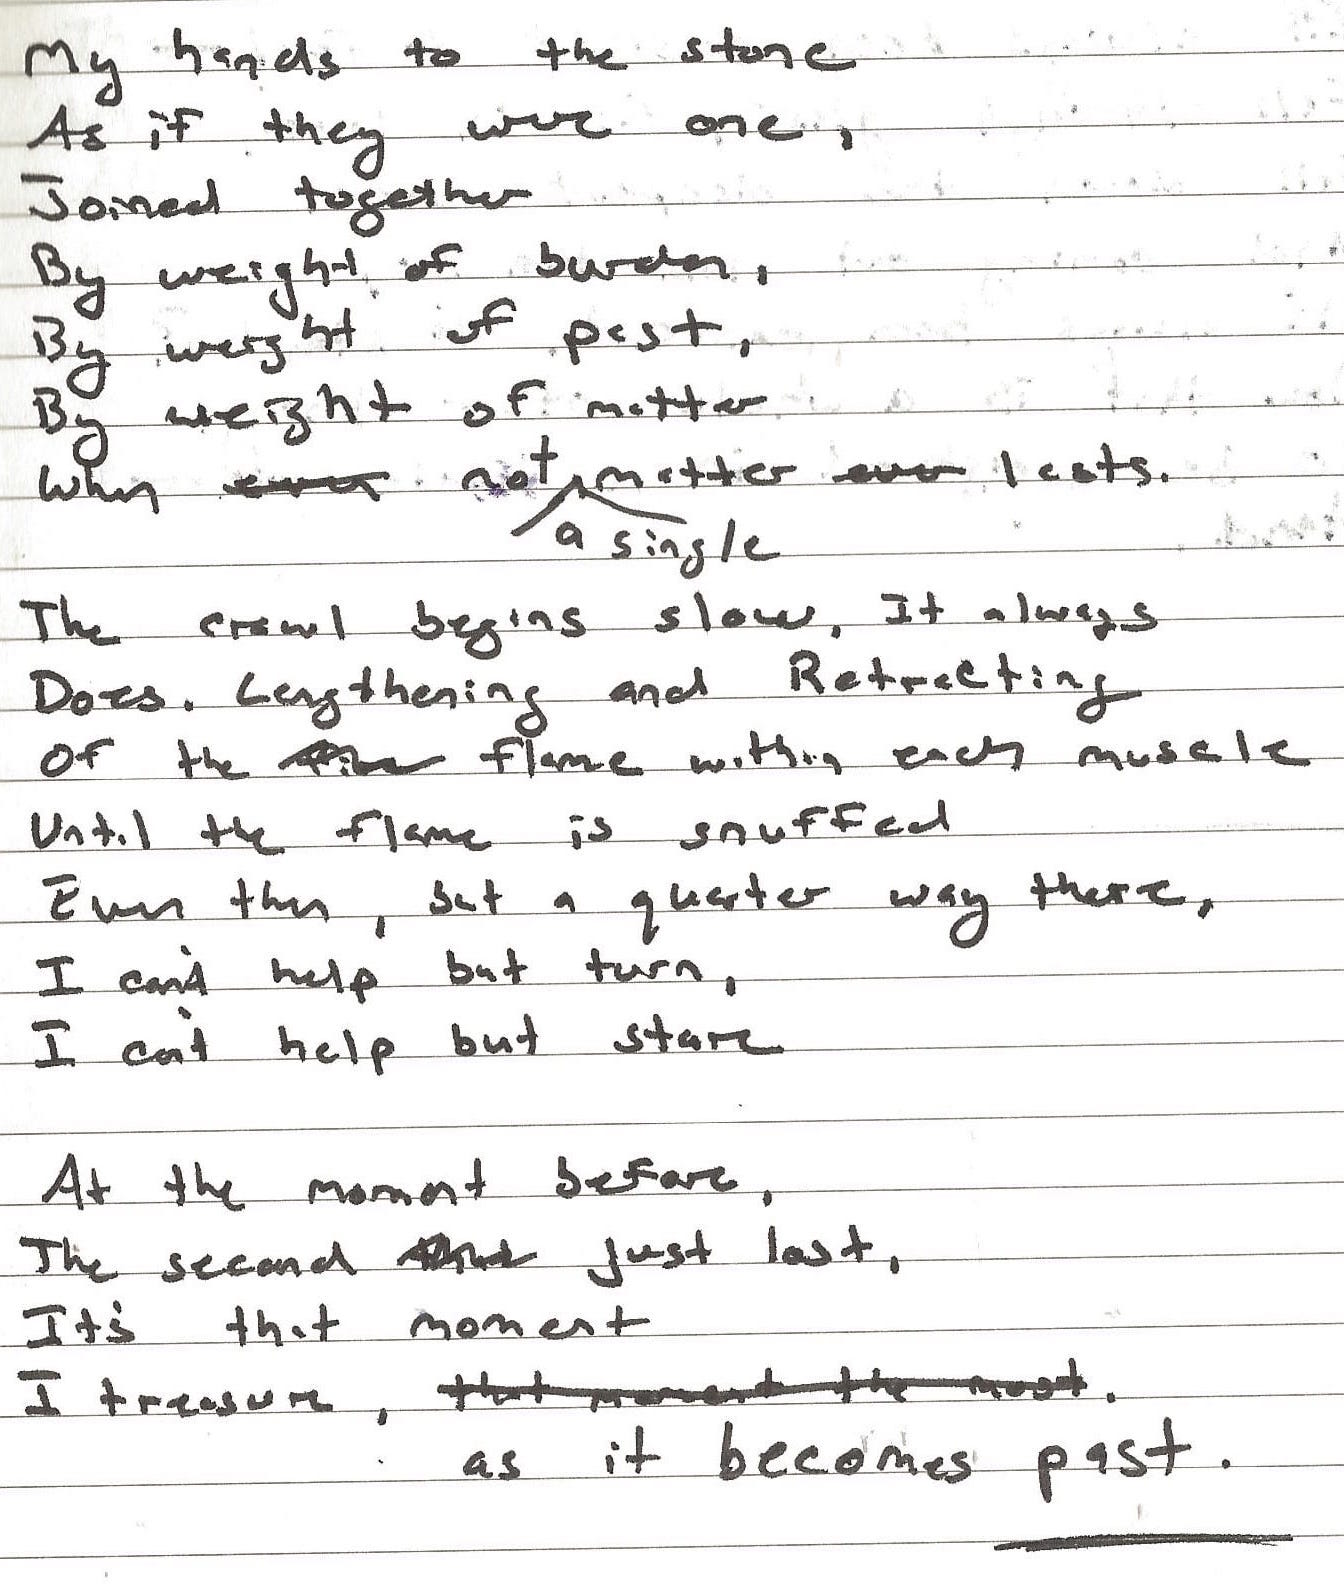 My hands to the stone
As if they were one,
Joined together
By weight of burden,
By weight of past,
By weight of matter
When not matter lasts.
a single
The crawl begins slow, It always
Does. Lengthening and Retracting
Of the flame within each muscle
Until the flame is snuffed
Even then, but a quarter way there,
I can't help but turn,
I can't help but stare
At the moment before,
The second just lost,
It's that moment
I treasure, that moment the most.
as it becomes past.